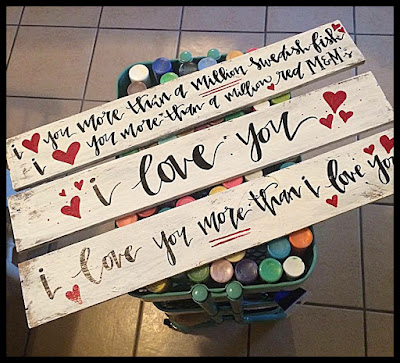 i ♥ you more than a million swedish fish
i ♥ you more than a million red M&M's
i love you
i love you more than i love you